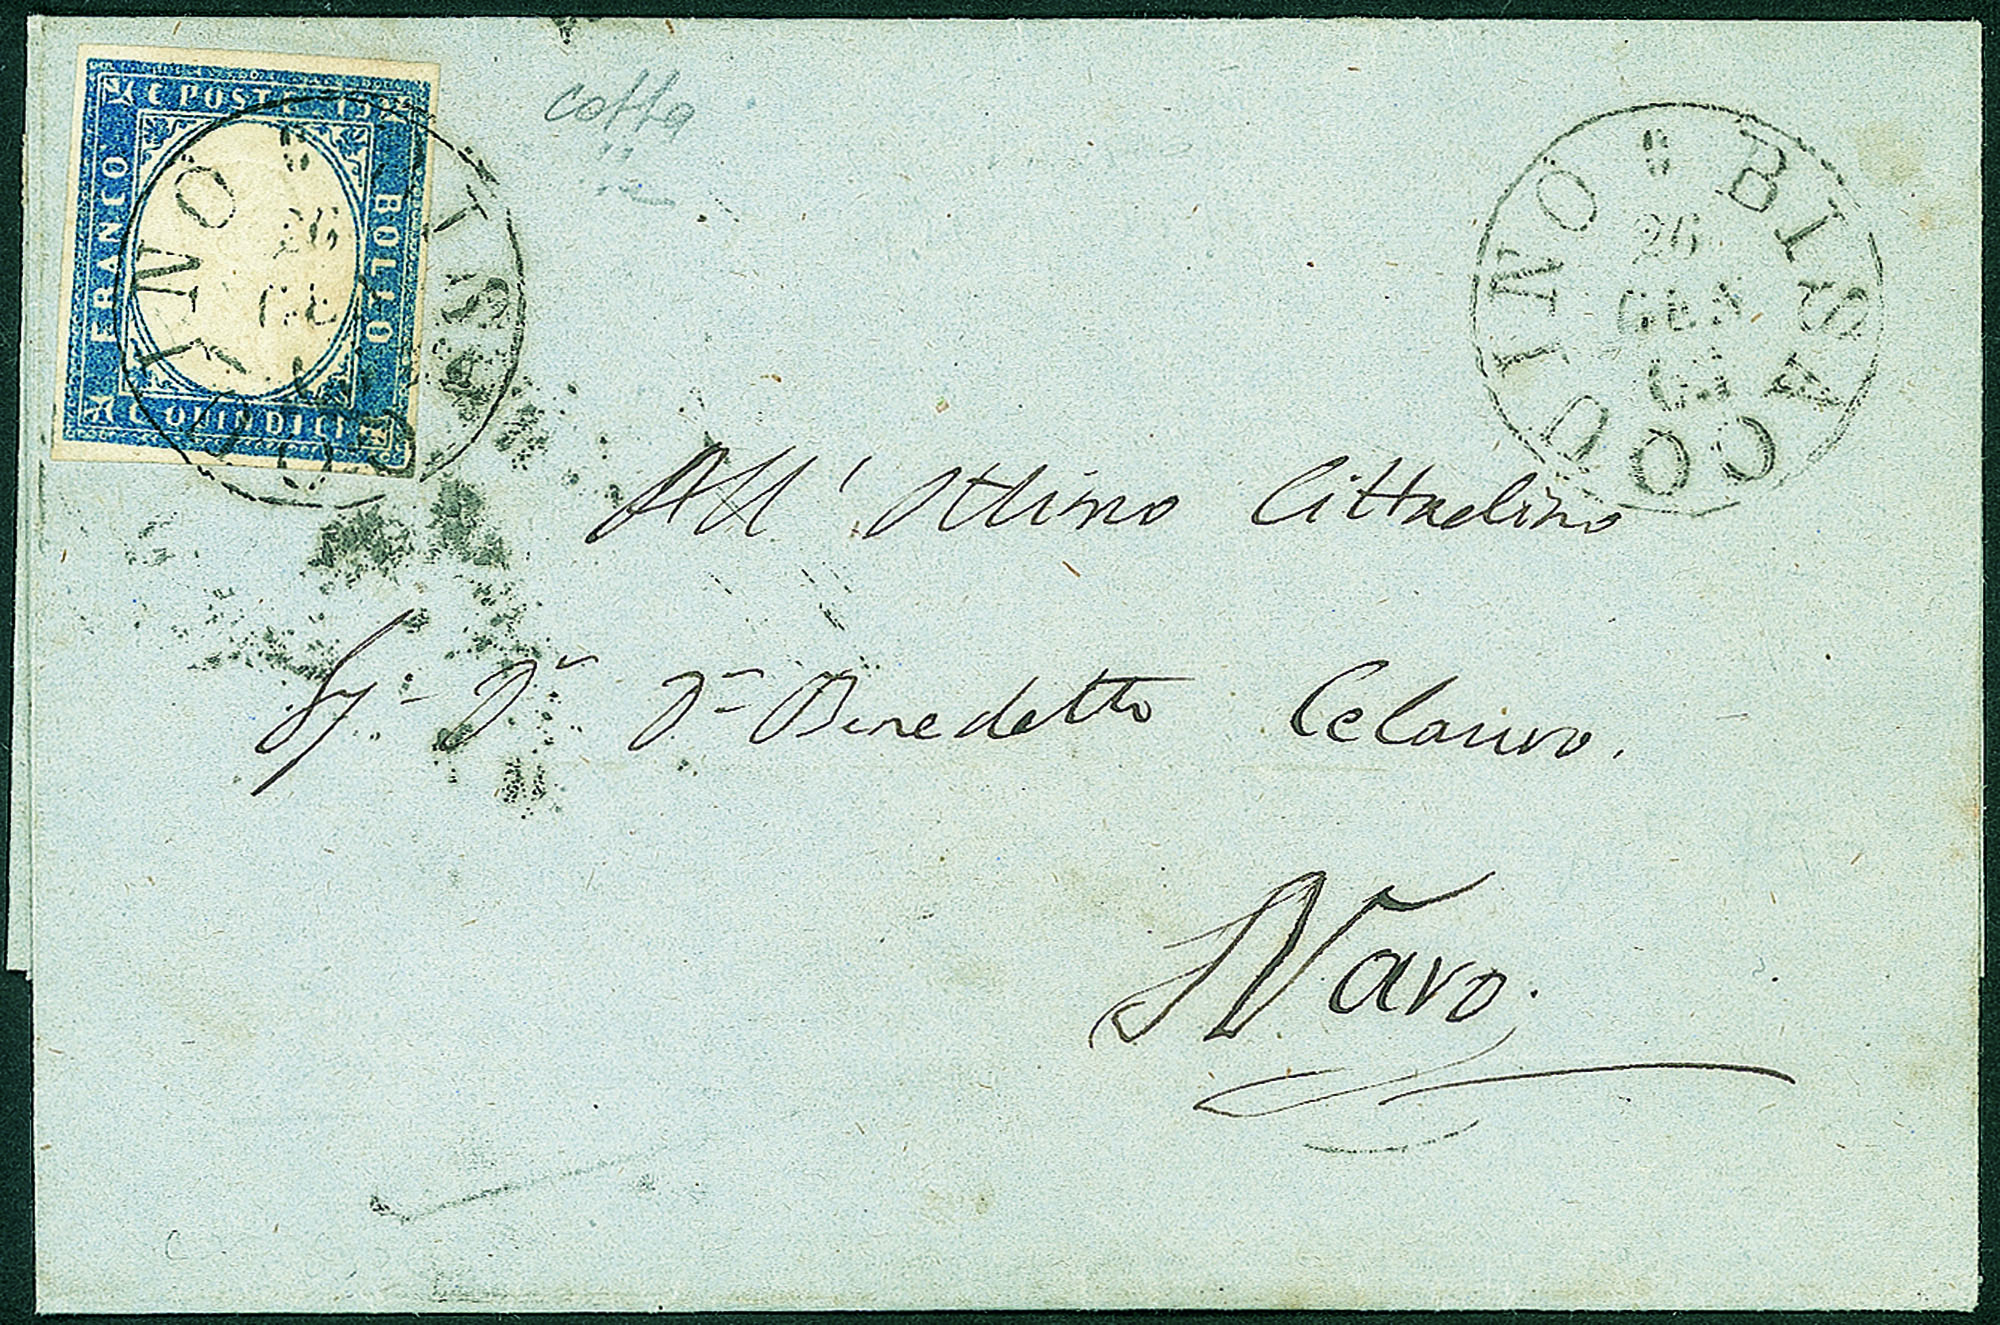 C POSTE 15
FRANCO
BOLLO
C QUINDICI
BISACQUINO
26
GEN
63
BISACQUINO
26
GE
All' Ill.mo Cittadino
Sig.r D.r D.n Benedetto Celauro.
Naro.